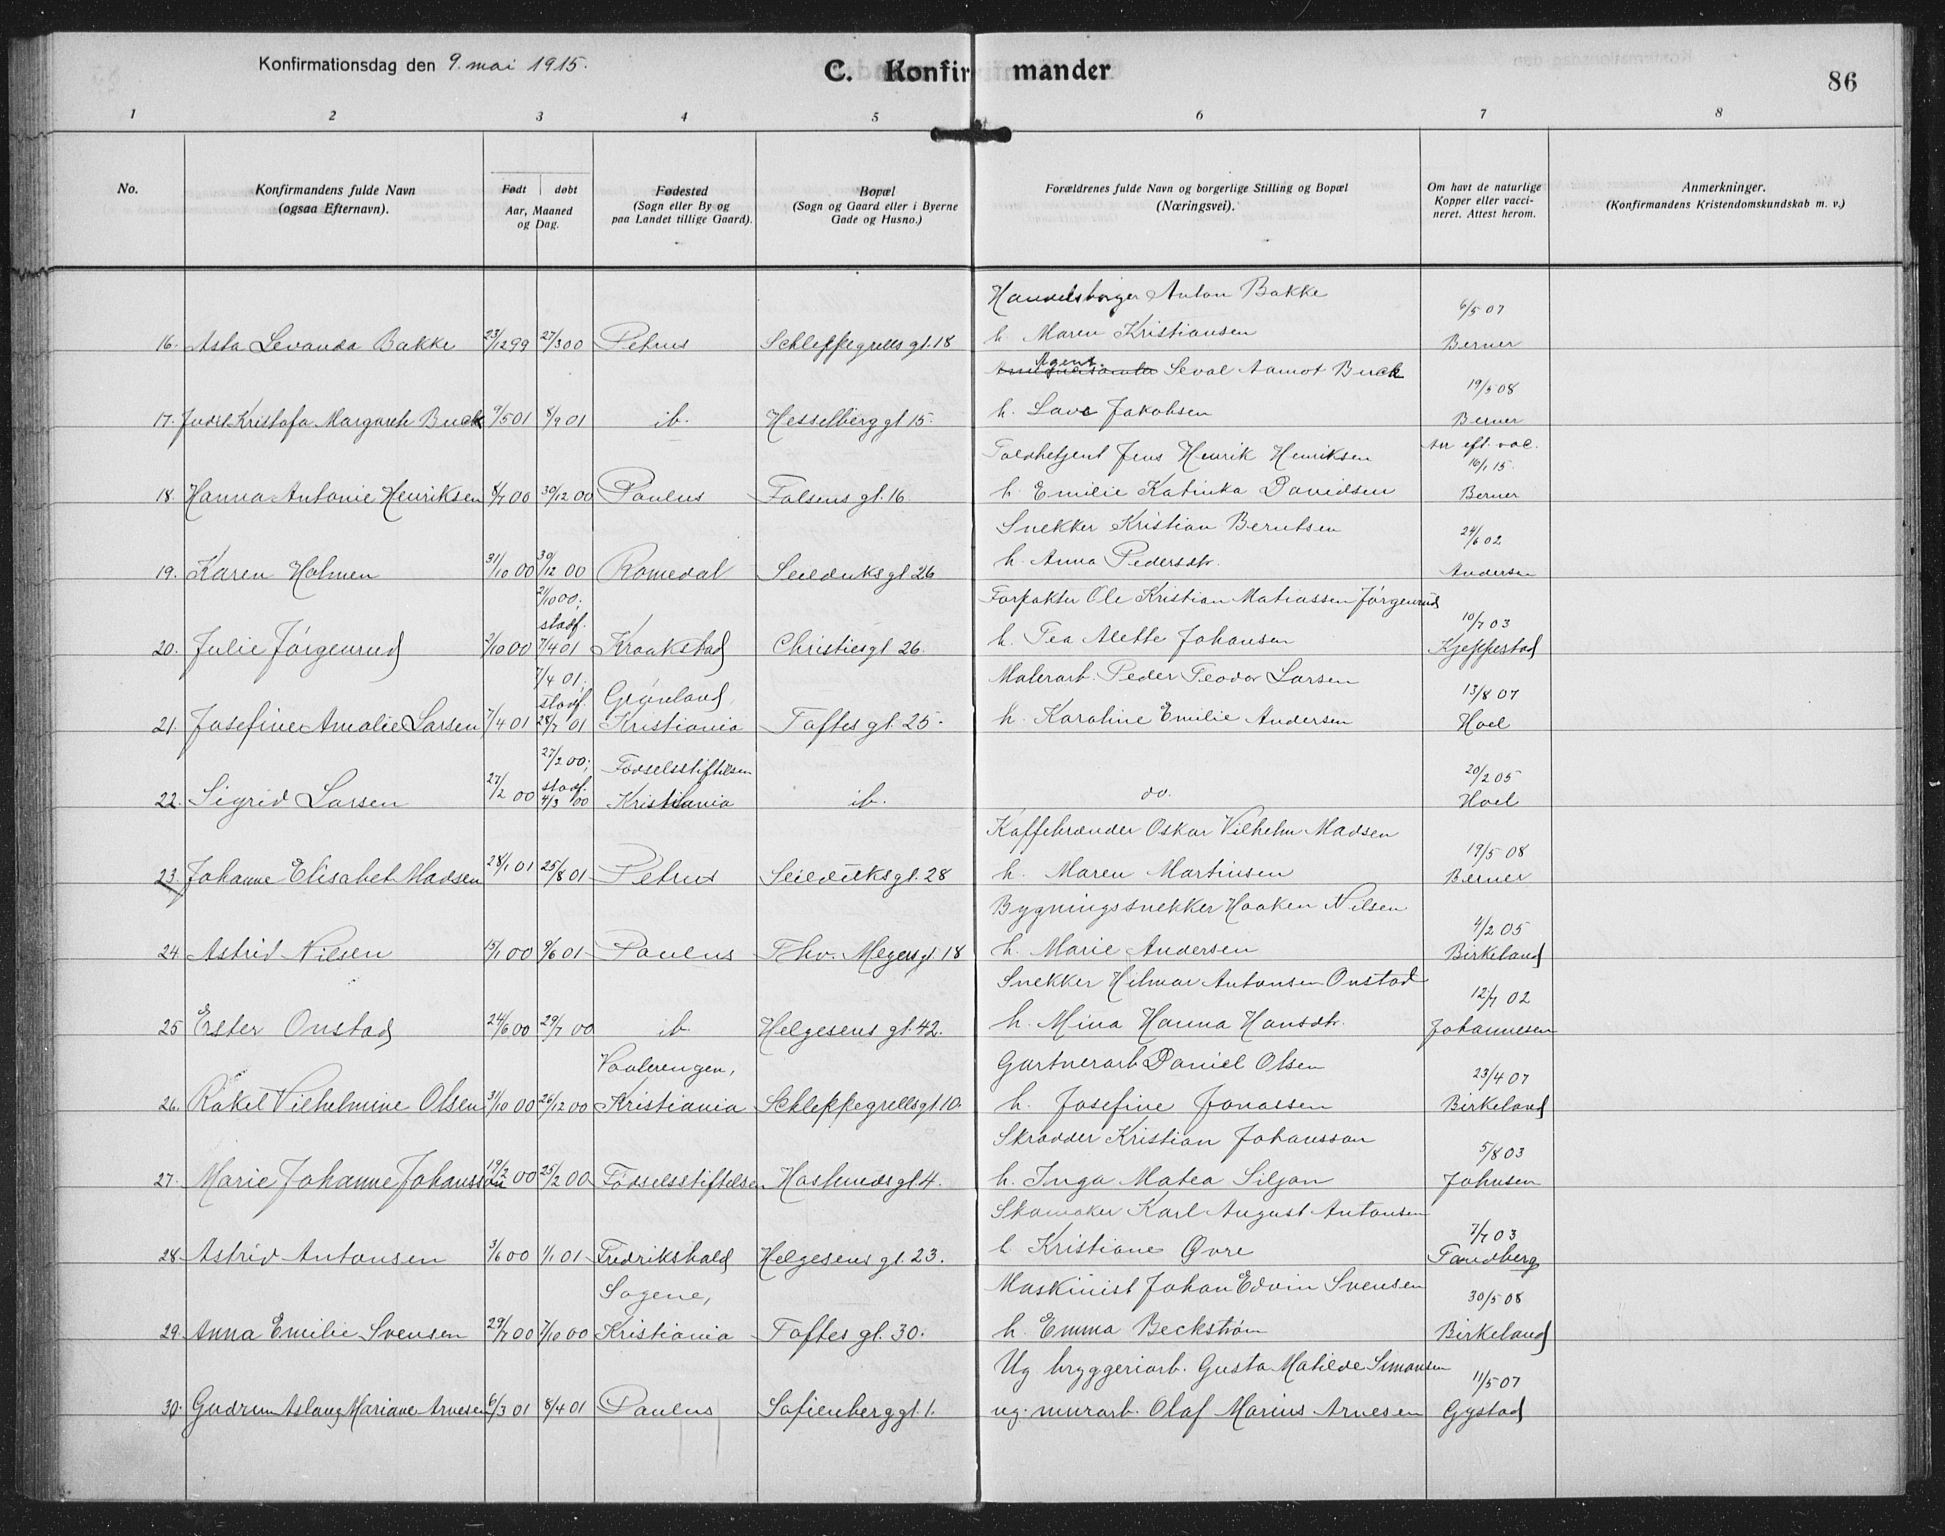 Konfirmationsdag den 9. mai 1915.
C. Konfirmander
86
1 2 3 4 5 6 7 8
No.
Konfirmandens fulde Navn
(ogsaa Efternavn).
Født døbt
Aar, Maaned
og Dag.
Fødested
(Sogn eller By og
paa Landet tillige Gaard).
Bopæl
(Sogn og Gaard eller i Byerne
Gade og Husno.)
Forældrenes fulde Navn og borgerlige Stilling og Bopæl
(Næringsvei).
Om havt de naturlige
Kopper eller vacci-
neret. Attest herom.
Anmerkninger.
(Konfirmandens Kristendomskundskab m. v.)
Handelsborger Anton Bakke
6/5 07
16. Asta Levanda Bakke 23/12 99 27/3 00 Petrus Schleppegrells gt. 18 h. Maren Kristiansen Berner
Agent Seval Aamot Buck
19/5 08
17. Kristofa Margarete Buck 9/5 01 8/9 01 ib. Hesselberg gt 15. h. Jakobsen Berner
Toldbetjent Jens Henrik Henriksen An eft. vac.
16/1 15.
18. Hanna Antonie Henriksen 8/7 00 30/12 00 Paulus Falsens gt. 16 h. Emilie Katinka Davidsen Berner
Snekker Kristian Berntsen
24/6 02
19. Karen Holmen 31/10 00 30/12 00 Romedal Seilduks gt 26 h. Anna Pedersdtr. Andersen
2/10 00;
stadf.
Forpakter Ole Kristian Matiassen Jørgenrud
10/7 03
20. Julie Jørgenrud 2/10 00 7/4 01 Kraakstad Christies gt 26. h. Tea Alette Johansen Kjeppestad
7/4 01;
stadf.
Grønland,
Malerarb. Peder Teodor Larsen
13/8 07
21. Josefine Amalie Larsen 7/4 01 28/7 01 Kristiania Toftes gt. 25. h. Karoline Emilie Andersen Hoel
27/2 00;
stadf.
Fødselsstiftelsen
20/2 05
22. Sigrid Larsen 27/2 00 4/3 00 Kristiania ib. do. Hoel
Kaffebrænder Oskar Vilhelm Madsen
19/5 08
23. Johanne Elisabet Madsen 28/1 01 25/8 01 Petrus Seilduks gt. 28 h. Maren Martinsen Berner
Bygningssnekker Haaken Nilsen
4/2 05
24 Astrid Nilsen 15/1 00 9/6 01 Paulus Thv. Meyers gt. 18 h. Marie Andersen Birkeland
Snekker Hilmar Antonsen Onstad
12/7 02
25 Ester Onstad 24/6 00 29/7 00 ib. Helgesens gt. 42. h. Mina Hanna Hansdtr. Johannesen
Vaalerengen,
Gartnerarb. Daniel Olsen
23/4 07
26. Rakel Vilhelmine Olsen 31/10 00 26/12 00 Kristiania Schleppegrells gt. 10. h. Josefine Jonassen Birkeland
Skrædder Kristian Johansson
5/8 03
27. Marie Johanne Johansson 19/2 00 25/2 00 Fødselsstiftelsen Haslunds gt 4. h. Inga Matea Siljan Johnsen
Skomaker Karl August Antonsen
7/7 03
28. Astrid Antonsen 3/6 00 1/1 01 Fredrikshald Helgesens gt. 23. h Kristiane Øvre Tandberg
Sagene,
Maskinist Johan Edvin Svensen
30/5 08
29. Anna Emilie Svensen 29/7 00 7/10 00 Kristiania Toftes gt. 30. h. Emma Beckstrøm Birkeland
Ug bryggeriarb. Gusta Matilde Simonsen
11/5 07
30. Gudrun Aslaug Mariane Arnesen 6/3 01 8/4 01 Paulus Sofienberg gt. 1. ug. murarb. Olaf Marius Arnesen Gystad